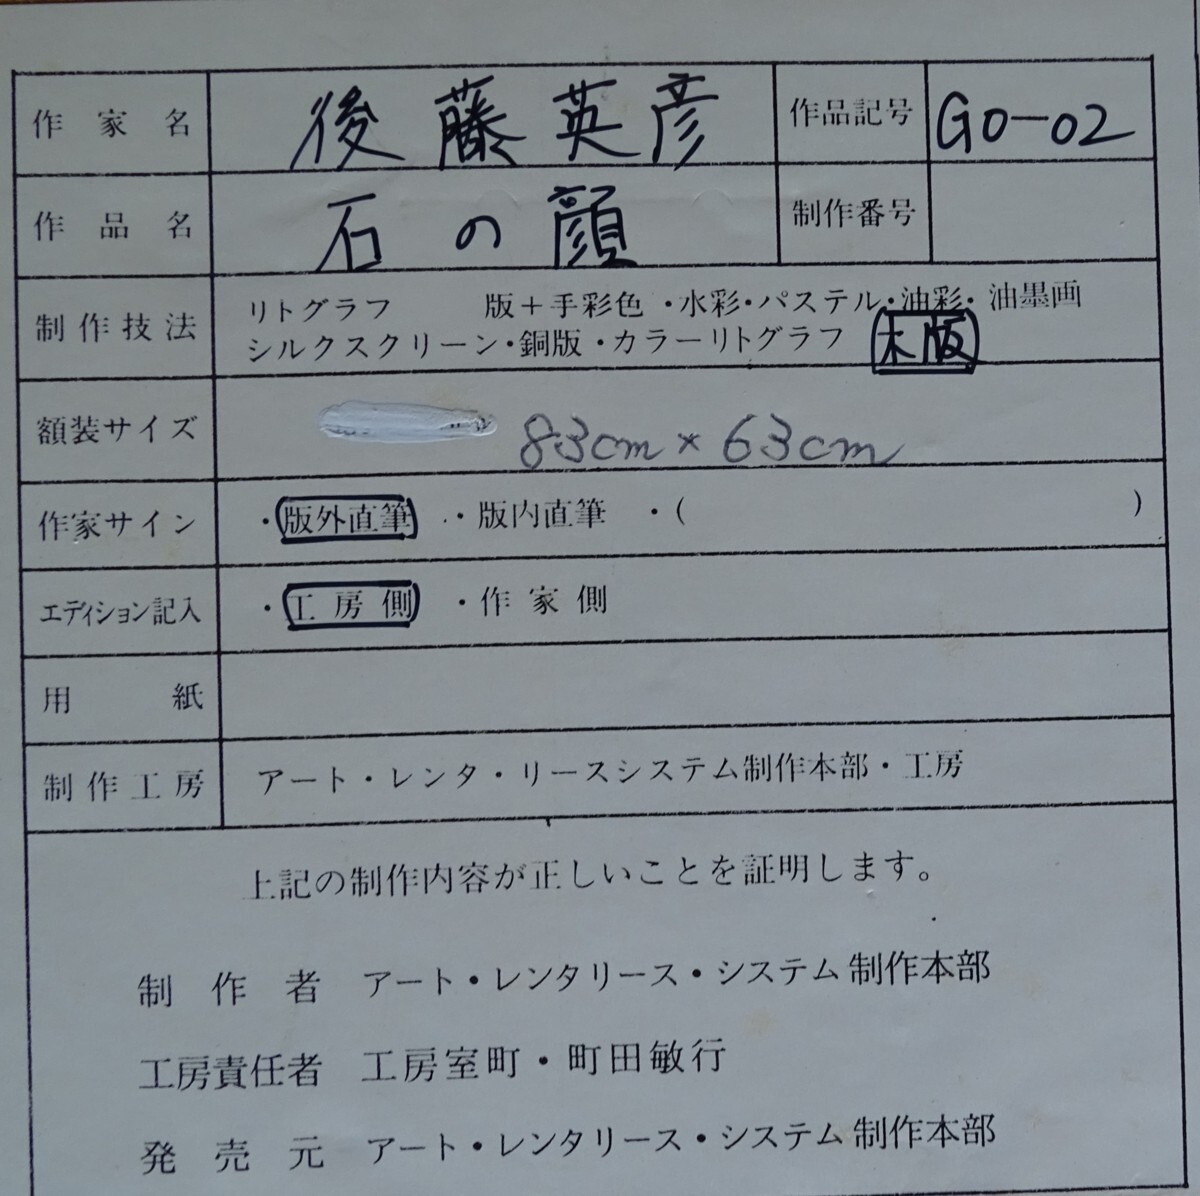 作家名 後藤英彦 作品記号 GO-02
作品名 石の顔 制作番号
制作技法 リトグラフ 版+手彩色・水彩・パステル・油彩・油墨画
シルクスクリーン・銅版・カラーリトグラフ 木版
額装サイズ 83cm×63cm
作家サイン ・版外直筆 ・版内直筆 ・( )
エディション記入 ・工房側 ・作家側
用紙
制作工房 アート・レンタ・リースシステム制作本部・工房
上記の制作内容が正しいことを証明します。
制作者 アート・レンタリース・システム制作本部
工房責任者 工房室町・町田敏行
発売元 アート・レンタリース・システム制作本部